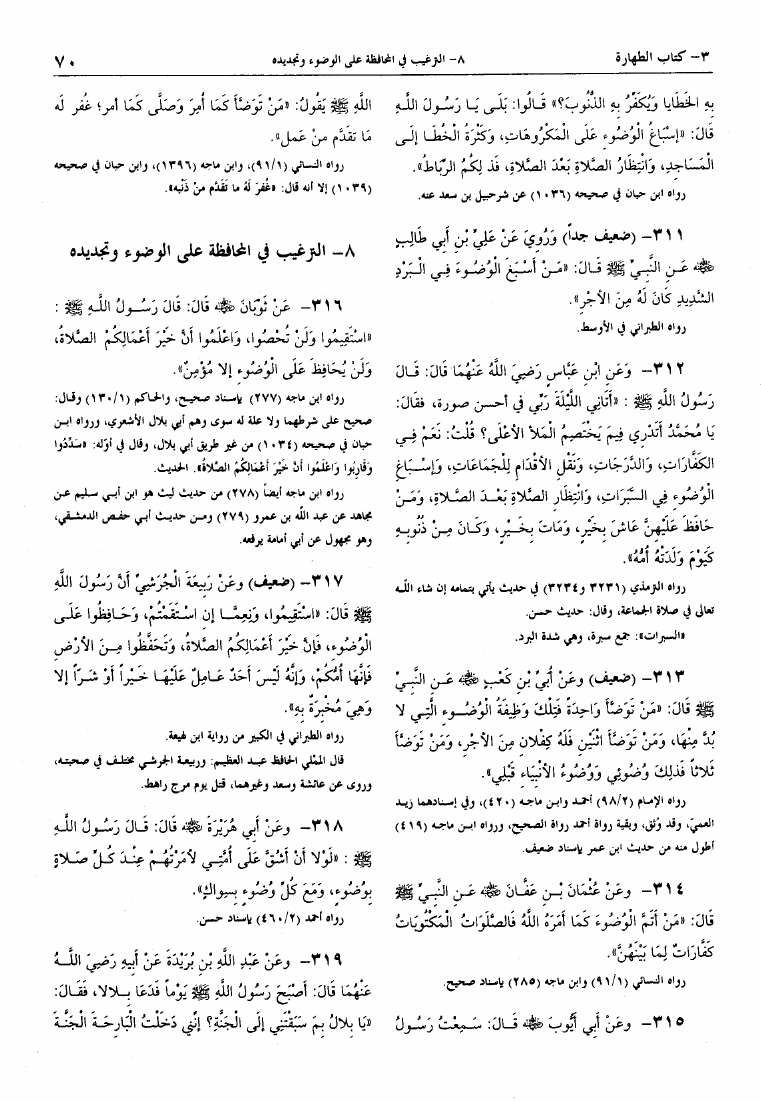 ٣- كتاب الطهارة ٨- الترغيب في المحافظة على الوضوء وتجديده ٧٠
بِهِ الخَطَايا وَيُكَفِّرُ بِهِ الذُّنُوبَ؟» قَالُوا: بَلَى يَا رَسُولَ اللَّهِ
قَالَ: «إسْبَاغُ الْوُضُوءِ عَلَى الْمَكْرُوهَاتِ، وَكَثْرَةُ الْخُطَا إلَى
الْمَسَاجِدِ، وَانْتِظَارُ الصَّلاةِ بَعْدَ الصَّلاةِ، فَذلِكُمُ الرِّبَاطُ».
رواه ابن حبان في صحيحه (١٠٣٦) عن شرحبيل بن سعد عنه.
٣١١- (ضعيف جداً) وَرُوِيَ عَنْ عَلِيِّ بْنِ أَبي طَالِبٍ
ﷺ عَنِ النَّبيِّ ﷺ قَالَ: «مَنْ أَسْبَغَ الْوُضُوءَ فِي الْبَرْدِ
الشَّدِيدِ كَانَ لَهُ مِنَ الأَجْرِ».
رواه الطبراني في الأوسط.
٣١٢- وَعَنِ ابْنِ عَبَّاسٍ رَضِيَ اللَّهُ عَنْهُمَا قَالَ: قَالَ
رَسُولُ اللَّهِ ﷺ: «أَتَانِي اللَّيْلَةَ رَبِّي في أحسنِ صورة، فقَالَ:
يَا مُحَمَّدُ أَتَدْرِي فِيمَ يَخْتَصِمُ الْمَلأُ الأَعْلَى؟ قُلْتُ: نَعَمْ فِي
الكَفَّارَاتِ، وَالدَّرَجَاتِ، وَنَقْلِ الأَقْدَامِ لِلْجَمَاعَاتِ، وَإسْبَاغِ
الْوُضُوءِ فِي السَّبَرَاتِ، وَانْتِظَارِ الصَّلاةِ بَعْدَ الصَّلاةِ، وَمَنْ
حَافَظَ عَلَيْهِنَّ عَاشَ بِخَيْرٍ، وَمَاتَ بِخَيْرٍ، وَكَانَ مِنْ ذُنُوبِهِ
كَيَوْمَ وَلَدَتْهُ أُمُّهُ».
رواه الترمذي (٣٢٣١ و٣٢٣٤) في حديث يأتي بتمامه إن شاء اللَّه
تعالى في صلاة الجماعة، وقال: حديث حسن.
«السبرات»: جمع سبرة، وهي شدة البرد.
٣١٣- (ضعيف) وعَنْ أُبَيِّ بْنِ كَعْبٍ ﷺ عَنِ النَّبيِّ
ﷺ قَالَ: «مَنْ تَوَضَّأَ وَاحِدَةً فَتِلْكَ وَظِيفَةُ الْوُضُوءِ الَّتِي لا
بُدَّ مِنْهَا، وَمَنْ تَوَضَّأَ اثْنَيْنِ فَلَهُ كِفْلانِ مِنَ الأَجْرِ، وَمَنْ تَوَضَّأَ
ثَلاثاً فَذلِكَ وُضُوئِي وَوُضُوءُ الأَنْبِيَاءِ قَبْلِي».
رواه الإمام (٩٨/٢) أحمد وابن ماجه (٤٢٠)، وفي إسنادهما زيد
العمي، وقد وُثق، وبقية رواة أحمد رواة الصحيح، ورواه ابن ماجه (٤١٩)
أطول منه من حديث ابن عمر بإسناد ضعيف.
٣١٤- وعَنْ عُثْمَانَ بْنِ عَفَّانَ ﷺ عَنِ النَّبيِّ ﷺ
قَالَ: «مَنْ أَتَمَّ الْوُضُوءَ كَمَا أَمَرَهُ اللَّهُ فَالصَّلَوَاتُ الْمَكْتُوبَاتُ
كَفَّارَاتٌ لِمَا بَيْنَهُنَّ».
رواه النسائي (٩١/١) وابن ماجه (٢٨٥) بإسناد صحيح.
٣١٥- وعَنْ أَبي أَيُّوبَ ﷺ قَالَ: سَمِعْتُ رَسُولَ
اللَّهِ ﷺ يَقُولُ: «مَنْ تَوَضَّأَ كَمَا أُمِرَ وَصَلَّى كَمَا أمر؛ غُفر له
مَا تقدَّم منْ عَمل».
رواه النسائي (٩١/١)، وابن ماجه (١٣٩٦)، وابن حبان في صحيحه
(١٠٣٩) إلا أنه قال: «غُفرَ لَهُ ما تَقَدَّم منْ ذَنْبه».
٨- الترغيب في المحافظة على الوضوء وتجديده
٣١٦- عَنْ ثَوْبَانَ ﷺ قَالَ: قَالَ رَسُولُ اللَّهِ ﷺ:
«اسْتَقِيمُوا وَلَنْ تُحْصُوا، وَاعْلَمُوا أَنَّ خَيْرَ أَعْمَالِكُمُ الصَّلاةُ،
وَلَنْ يُحَافِظَ عَلَى الْوُضُوءِ إلا مُؤْمِنٌ».
رواه ابن ماجه (٢٧٧) بإسناد صحيح، والحاكم (١٣٠/١) وقال:
صحيح على شرطهما ولا علة له سوى وهم أبي بلال الأشعري، ورواه ابن
حبان في صحيحه (١٠٣٤) من غير طريق أبي بلال، وقال في أوّله: «سَدِّدُوا
وَقَاربُوا وَاعْلَمُوا أنَّ خَيْرَ أَعْمَالكُمُ الصَّلاةُ». الحديث.
رواه ابن ماجه أيضاً (٢٧٨) من حديث ليث هو ابن أبي سليم عن
مجاهد عن عبد اللَّه بن عمرو (٢٧٩) ومن حديث أبي حفص الدمشقي،
وهو مجهول عن أبي أمامة يرفعه.
٣١٧- (ضعيف) وعَنْ رَبِيعَةَ الْجُرَشِيِّ أَنَّ رَسُولَ اللَّهِ
ﷺ قَالَ: «اسْتَقِيمُوا، وَنِعِمَّا إن اسْتَقَمْتُمْ، وَحَافِظُوا عَلَى
الْوُضُوءِ، فَإنَّ خَيْرَ أَعْمَالِكُمُ الصَّلاةُ، وَتَحَفَّظُوا مِنَ الأَرْضِ
فَإنَّهَا أُمُّكُمْ، وَإنَّهُ لَيْسَ أَحَدٌ عَامِلٌ عَلَيْهَا خَيْراً أَوْ شَرّاً إلا
وَهِيَ مُخْبِرَةٌ بِهِ».
رواه الطبراني في الكبير من رواية ابن لهيعة.
قال المُمْلي الحافظ عبد العظيم: وربيعة الجرشي مختلف في صحبته،
وروى عن عائشة وسعد وغيرهما، قتل يوم مرج راهط.
٣١٨- وعَنْ أَبي هُرَيْرَةَ ﷺ قَالَ: قَالَ رَسُولُ اللَّهِ
ﷺ: «لَوْلا أَنْ أَشُقَّ عَلَى أُمَّتِي لأَمَرْتُهُمْ عِنْدَ كُلِّ صَلاةٍ
بِوُضُوءٍ، وَمَعَ كُلِّ وُضُوءٍ بِسِوَاكٍ».
رواه أحمد (٤٦٠/٢) بإسناد حسن.
٣١٩- وعَنْ عَبْدِ اللَّهِ بْنِ بُرَيْدَةَ عَنْ أَبِيهِ رَضِيَ اللَّهُ
عَنْهُمَا قَالَ: أَصْبَحَ رَسُولُ اللَّهِ ﷺ يَوْماً فَدَعَا بِلالا، فَقَالَ:
«يَا بِلالُ بِمَ سَبَقْتَنِي إلَى الْجَنَّةِ؟ إنَّنِي دَخَلْتُ الْبَارِحَةَ الْجَنَّةَ